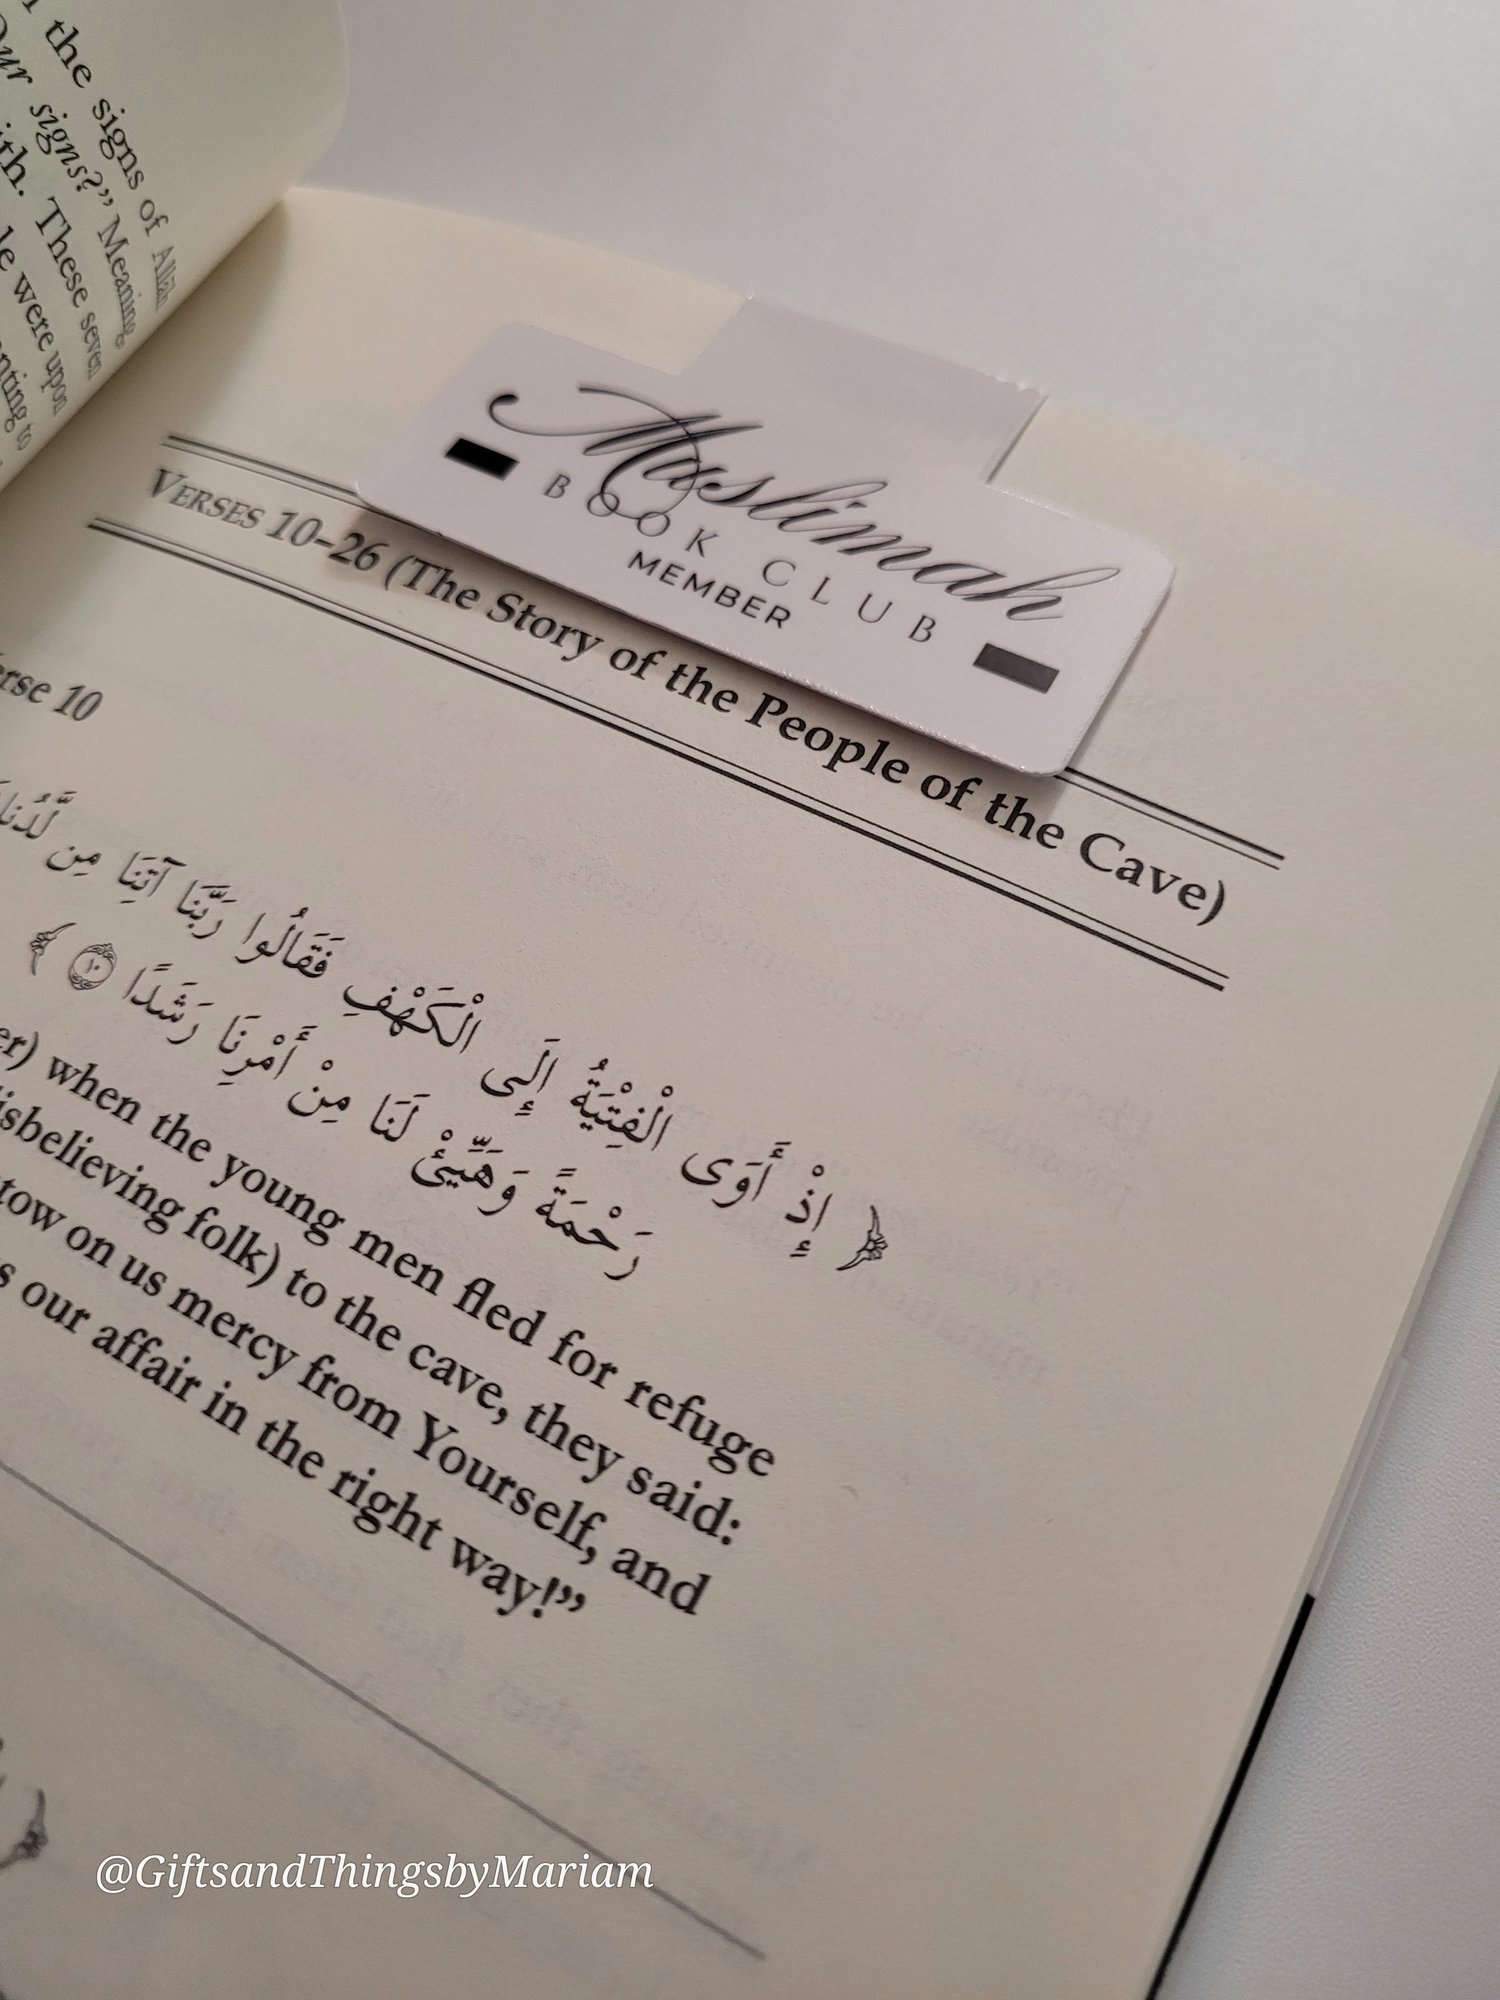 the signs of Allāh
signs?" Meaning
These seven
were upon
Muslimah
BOOK CLUB
MEMBER
VERSES 10–26 (The Story of the People of the Cave)
10
﴿ إِذْ أَوَى الْفِتْيَةُ إِلَى الْكَهْفِ فَقَالُوا رَبَّنَا آتِنَا مِن لَّدُنكَ
رَحْمَةً وَهَيِّئْ لَنَا مِنْ أَمْرِنَا رَشَدًا ١٠ ﴾
when the young men fled for refuge
folk) to the cave, they said:
on us mercy from Yourself, and
our affair in the right way!”
@GiftsandThingsbyMariam